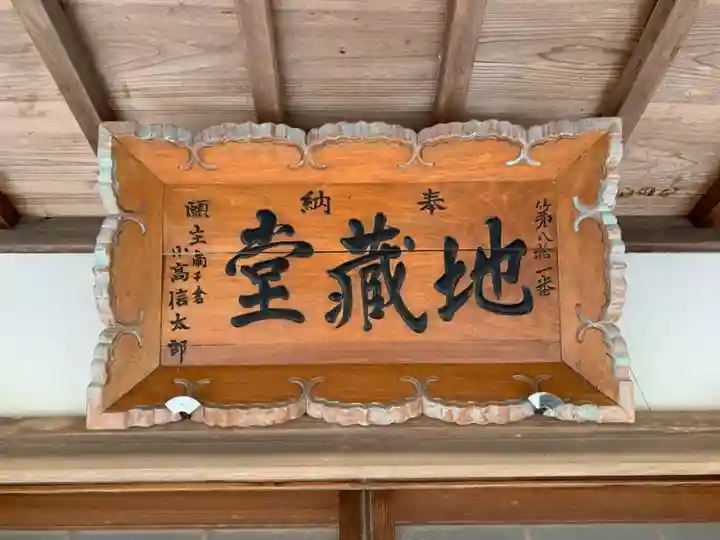 奉納
第八拾一番
地藏堂
願主
小高信太郎